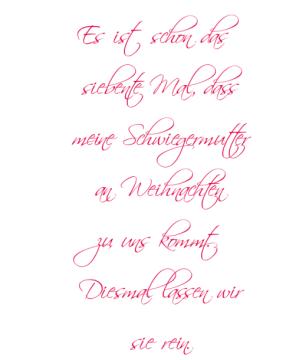 Es ist schon das
siebente Mal, dass
meine Schwiegermutter
an Weihnachten
zu uns kommt.
Diesmal lassen wir
sie rein.